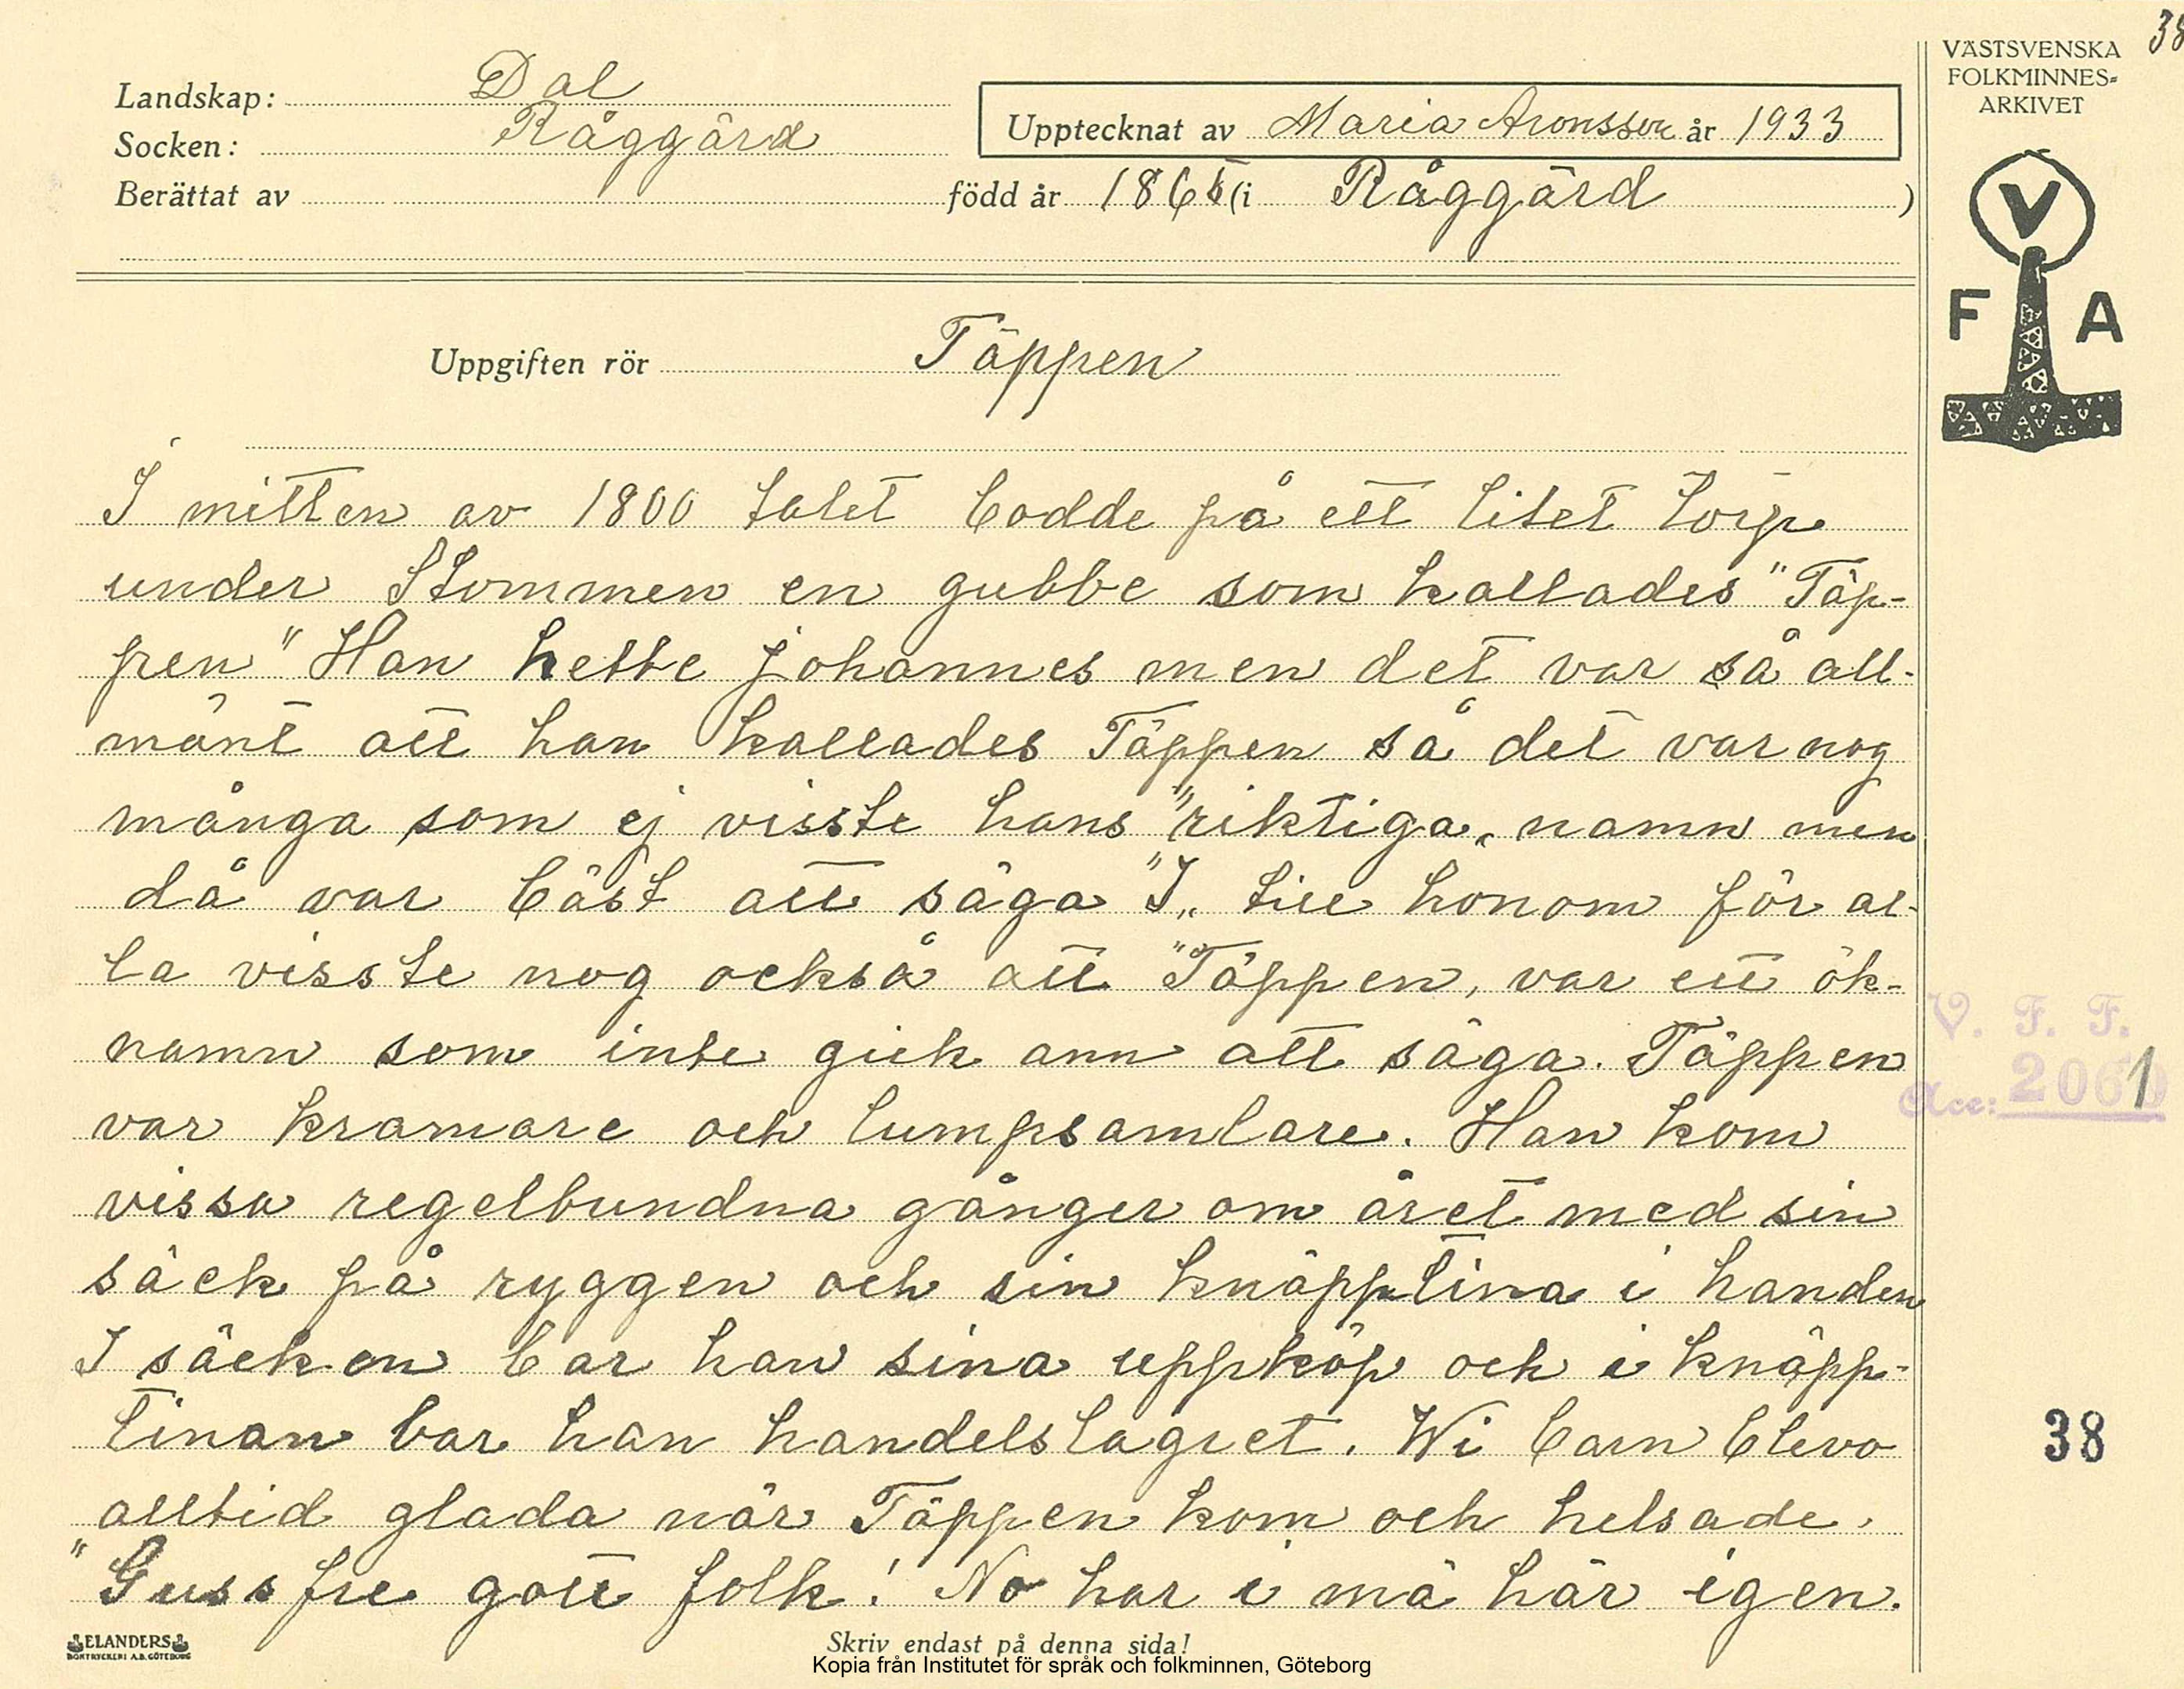 38
VÄSTSVENSKA
FOLKMINNES-
ARKIVET
Landskap: Dal
Socken: Råggärd
Upptecknat av Maria Aronsson år 1933
Berättat av född år 1865 (i Råggärd )
V
F A
Uppgiften rör Täppen
I mitten av 1800 talet bodde på ett litet torp
under Stommen en gubbe som kallades "Täp-
pen" Han hette Johannes men det var så all-
mänt att han kallades Täppen så det var nog
många som ej visste hans "riktiga" namn men
då var bäst att säga "I" till honom för al-
la visste nog också att "Täppen, var ett ök-
namn som inte gick ann att säga. Täppen
var kramare och lumpsamlare. Han kom
vissa regelbundna gånger om året med sin
säck på ryggen och sin knäpptina i handen
I säcken bar han sina uppköp och i knäpp-
tinan bar han handelslagret. Wi barn blevo
alltid glada när Täppen kom och helsade.
"Guss fre gott folk! No har i mä här igen.
V. F. F.
Acc: 2061
38
ELANDERS
BOKTRYCKERI A.B. GÖTEBORG
Skriv endast på denna sida!
Kopia från Institutet för språk och folkminnen, Göteborg